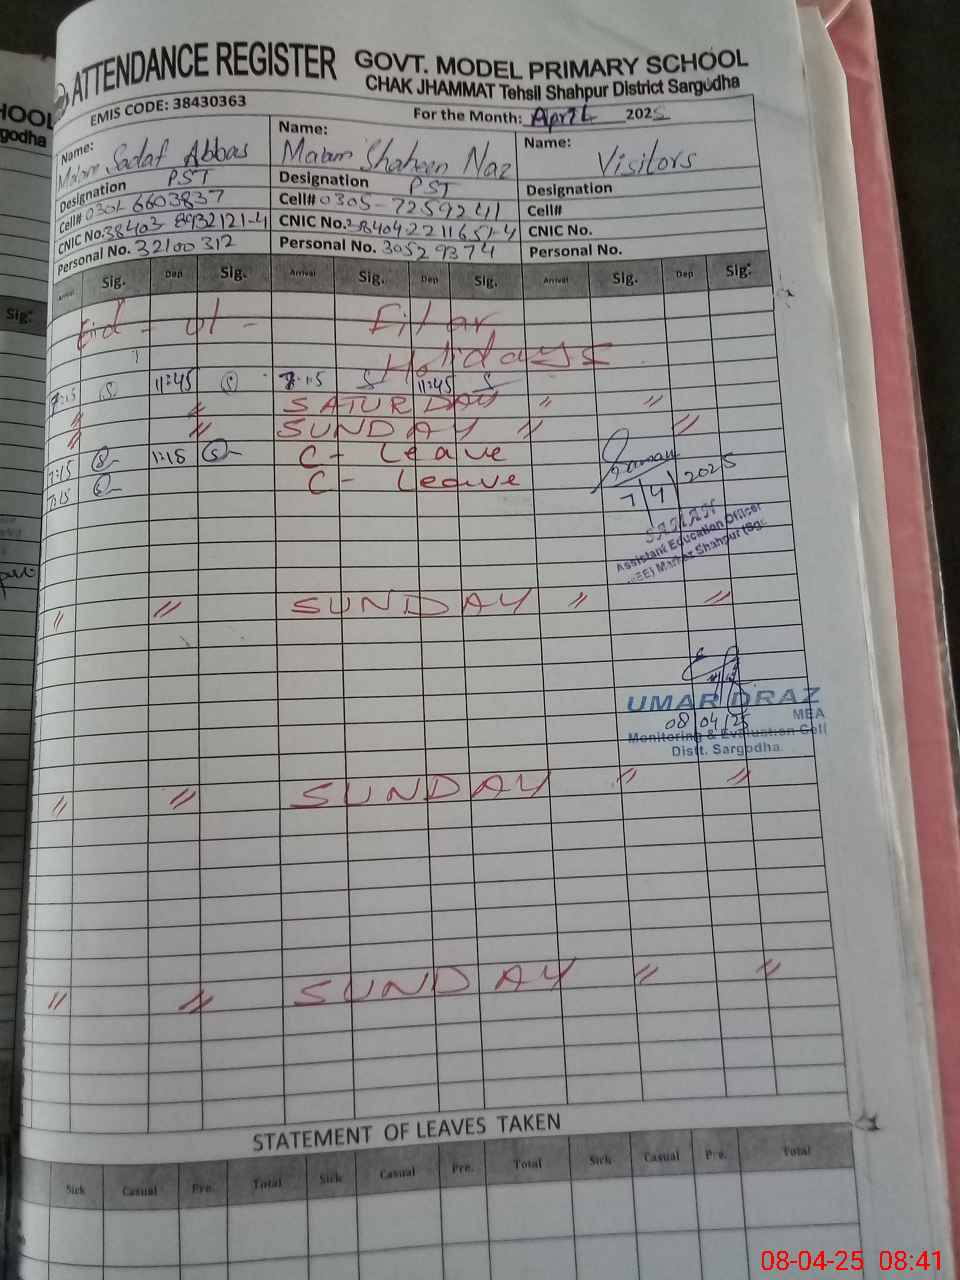 HOOL
godha
Sig:
ATTENDANCE REGISTER GOVT. MODEL PRIMARY SCHOOL
CHAK JHAMMAT Tehsil Shahpur District Sargodha
EMIS CODE: 38430363 For the Month: April 2025
Name: Madam Sadaf Abbas Name: Madam Shaheen Naz Name: Visitors
Designation PST Designation PST Designation
Cell# 0301 6603837 Cell# 0305-7259241 Cell#
CNIC No. 38403 8932121-4 CNIC No. 38404 2211651-4 CNIC No.
Personal No. 32100312 Personal No. 30529374 Personal No.
Arrival Sig. Dep Sig. Arrival Sig. Dep Sig. Arrival Sig. Dep Sig:
Eid - ul - Fitar
Holidays
7:15 11:45 7:15 11:45
〃 〃 SATURDAY 〃 〃
〃 〃 SUNDAY 〃 〃
7:15 1:15 C- Leave
7:15 C- Leave
7/4/2025
SAMAN
Assistant Education Officer
(WEE) Markaz Shahpur (Sgd
〃 〃 SUNDAY 〃 〃
UMAR DRAZ
08/04/25 MEA
Monitoring & Evaluation Cell
Distt. Sargodha.
〃 〃 SUNDAY 〃 〃
〃 〃 SUNDAY 〃 〃
STATEMENT OF LEAVES TAKEN
Sick Casual Pre. Total Sick Casual Pre. Total Sick Casual Pre. Total
08-04-25 08:41